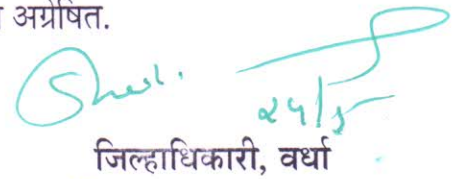 अग्रेषित.
२५/५
जिल्हाधिकारी, वर्धा